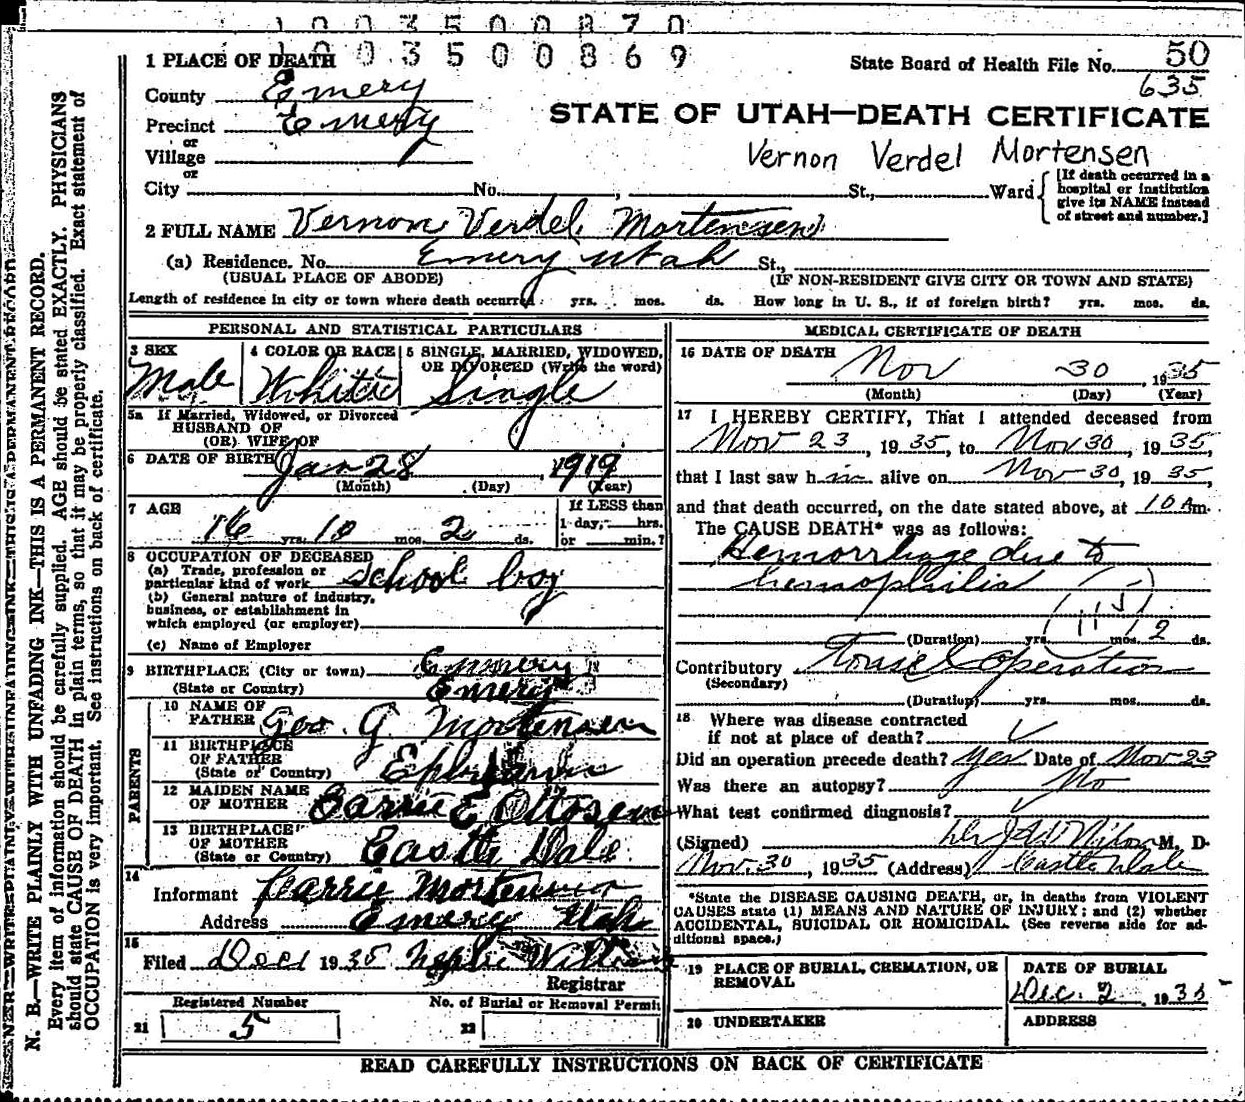 1003500870
1003500869
1 PLACE OF DEATH
State Board of Health File No. 50
635
County Emery
STATE OF UTAH—DEATH CERTIFICATE
Precinct Emery
or
Village
Vernon Verdel Mortensen
or
City No. , St., Ward
[If death occurred in a hospital or institution give its NAME instead of street and number.]
2 FULL NAME Vernon Verdel Mortensen
(a) Residence. No. Emery Utah St.,
(USUAL PLACE OF ABODE) (IF NON-RESIDENT GIVE CITY OR TOWN AND STATE)
Length of residence in city or town where death occurred yrs. mos. ds. How long in U. S., if of foreign birth? yrs. mos. ds.
PERSONAL AND STATISTICAL PARTICULARS
3 SEX 4 COLOR OR RACE 5 SINGLE, MARRIED, WIDOWED,
OR DIVORCED (Write the word)
Male White Single
5a If Married, Widowed, or Divorced
HUSBAND OF
(OR) WIFE OF
6 DATE OF BIRTH Jan 28, 1919
(Month) (Day) (Year)
7 AGE If LESS than
16 yrs. 10 mos. 2 ds. 1 day, hrs.
or min.?
8 OCCUPATION OF DECEASED
(a) Trade, profession or
particular kind of work School boy
(b) General nature of industry,
business, or establishment in
which employed (or employer)
(c) Name of Employer
9 BIRTHPLACE (City or town) Emery
(State or Country) Emery
PARENTS
10 NAME OF
FATHER Geo. G. Mortensen
11 BIRTHPLACE
OF FATHER
(State or Country) Ephraim
12 MAIDEN NAME
OF MOTHER Carrie E Ottosen
13 BIRTHPLACE
OF MOTHER
(State or Country) Castle Dale
14
Informant Carrie Mortensen
Address Emery Utah
15
Filed Dec 1 1935
Registrar
Registered Number No. of Burial or Removal Permit
21 5 22
MEDICAL CERTIFICATE OF DEATH
16 DATE OF DEATH
Nov 30, 1935
(Month) (Day) (Year)
17 I HEREBY CERTIFY, That I attended deceased from
Nov 23, 1935, to Nov 30, 1935,
that I last saw him alive on Nov 30, 1935,
and that death occurred, on the date stated above, at 10 Am.
The CAUSE DEATH* was as follows:
Hemorrhage due to
hemophilia
(Duration) yrs. mos. 2 ds.
Contributory Tonsil Operation
(Secondary)
(Duration) yrs. mos. ds.
18 Where was disease contracted
if not at place of death?
Did an operation precede death? Yes Date of Nov 23
Was there an autopsy? No
What test confirmed diagnosis?
(Signed) M. D.
Nov. 30, 1935 (Address) Castle Dale
*State the DISEASE CAUSING DEATH, or, in deaths from VIOLENT
CAUSES state (1) MEANS AND NATURE OF INJURY; and (2) whether
ACCIDENTAL, SUICIDAL OR HOMICIDAL. (See reverse side for ad-
ditional space.)
19 PLACE OF BURIAL, CREMATION, OR
REMOVAL
DATE OF BURIAL
Dec. 2, 1935
20 UNDERTAKER ADDRESS
READ CAREFULLY INSTRUCTIONS ON BACK OF CERTIFICATE
N. B.—WRITE PLAINLY WITH UNFADING INK—THIS IS A PERMANENT RECORD.
Every item of information should be carefully supplied. AGE should be stated EXACTLY. PHYSICIANS
should state CAUSE OF DEATH in plain terms, so that it may be properly classified. Exact statement of
OCCUPATION is very important. See instructions on back of certificate.